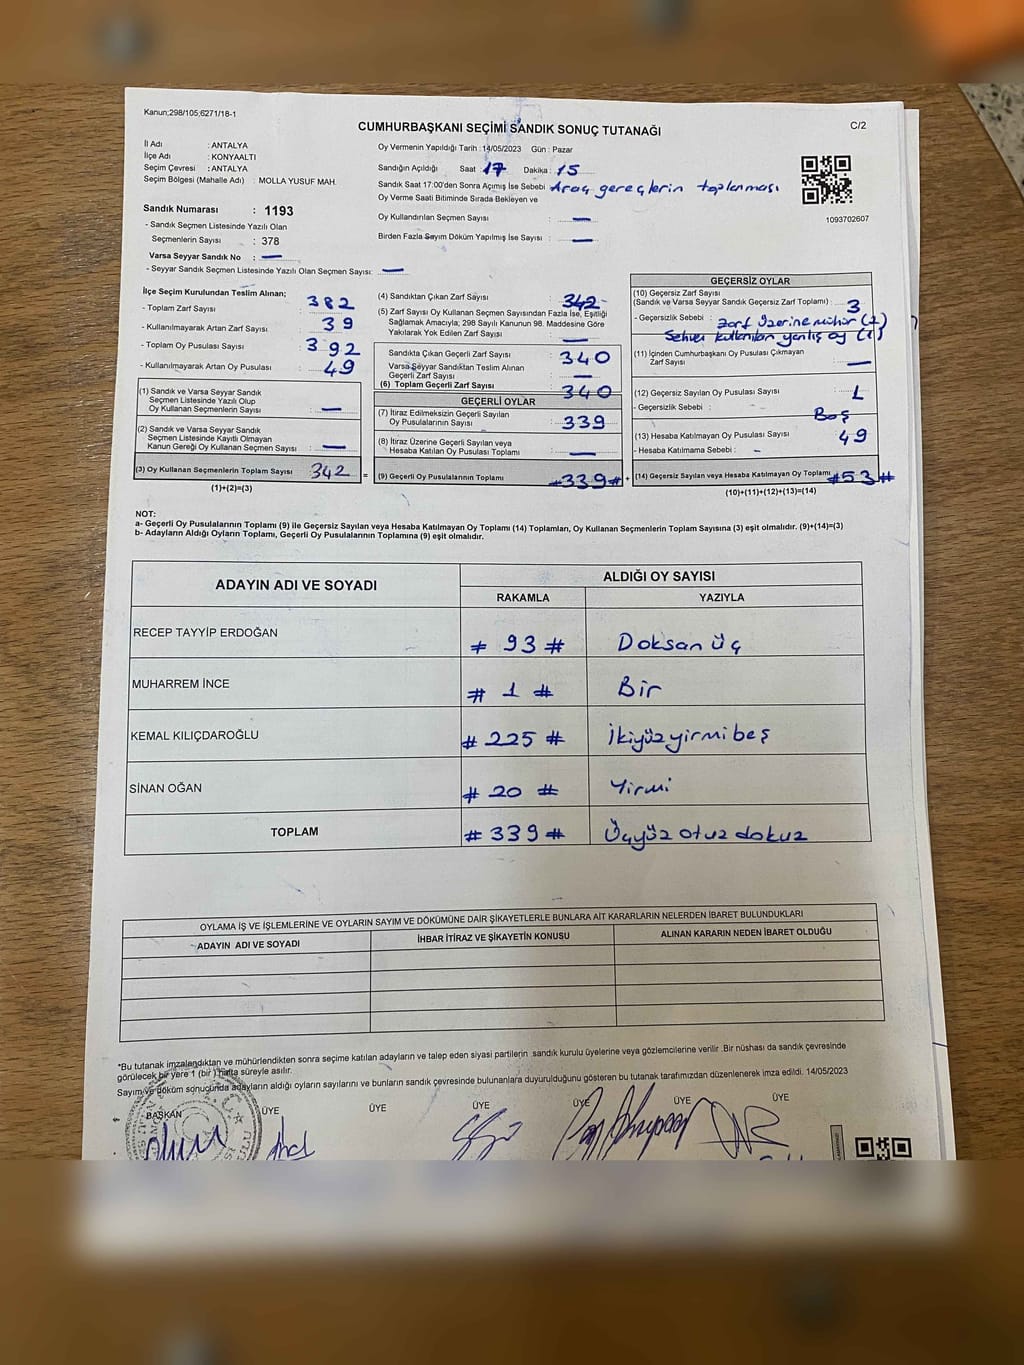 Kanun;298/105;6271/18-1
C/2
CUMHURBAŞKANI SEÇİMİ SANDIK SONUÇ TUTANAĞI
İl Adı : ANTALYA
İlçe Adı : KONYAALTI
Seçim Çevresi : ANTALYA
Seçim Bölgesi (Mahalle Adı) : MOLLA YUSUF MAH.
Sandık Numarası : 1193
- Sandık Seçmen Listesinde Yazılı Olan
Seçmenlerin Sayısı : 378
Varsa Seyyar Sandık No : —
- Seyyar Sandık Seçmen Listesinde Yazılı Olan Seçmen Sayısı: —
Oy Vermenin Yapıldığı Tarih : 14/05/2023 Gün : Pazar
Sandığın Açıldığı Saat : 17 Dakika : 15
Sandık Saat 17:00'den Sonra Açımış İse Sebebi : Araç gereçlerin toplanması
Oy Verme Saati Bitiminde Sırada Bekleyen ve
Oy Kullandırılan Seçmen Sayısı : —
Birden Fazla Sayım Döküm Yapılmış İse Sayısı : —
1093702607
İlçe Seçim Kurulundan Teslim Alınan;
- Toplam Zarf Sayısı : 382
- Kullanılmayarak Artan Zarf Sayısı : 39
- Toplam Oy Pusulası Sayısı : 392
- Kullanılmayarak Artan Oy Pusulası : 49
(1) Sandık ve Varsa Seyyar Sandık
Seçmen Listesinde Yazılı Olup
Oy Kullanan Seçmenlerin Sayısı : —
(2) Sandık ve Varsa Seyyar Sandık
Seçmen Listesinde Kayıtlı Olmayan
Kanun Gereği Oy Kullanan Seçmen Sayısı : —
(3) Oy Kullanan Seçmenlerin Toplam Sayısı : 342 =
(1)+(2)=(3)
(4) Sandıktan Çıkan Zarf Sayısı : 342
(5) Zarf Sayısı Oy Kullanan Seçmen Sayısından Fazla İse, Eşitliği
Sağlamak Amacıyla; 298 Sayılı Kanunun 98. Maddesine Göre
Yakılarak Yok Edilen Zarf Sayısı : —
Sandıkta Çıkan Geçerli Zarf Sayısı : 340
Varsa Seyyar Sandıktan Teslim Alınan
Geçerli Zarf Sayısı : —
(6) Toplam Geçerli Zarf Sayısı : 340
GEÇERLİ OYLAR
(7) İtiraz Edilmeksizin Geçerli Sayılan
Oy Pusulalarının Sayısı : 339
(8) İtiraz Üzerine Geçerli Sayılan veya
Hesaba Katılan Oy Pusulası Toplamı : —
(9) Geçerli Oy Pusulalarının Toplamı : #339# +
GEÇERSİZ OYLAR
(10) Geçersiz Zarf Sayısı
(Sandık ve Varsa Seyyar Sandık Geçersiz Zarf Toplamı) : 3
- Geçersizlik Sebebi : Zarf üzerine mühür (2)
Sehven kullanılan yanlış oy (1)
(11) İçinden Cumhurbaşkanı Oy Pusulası Çıkmayan
Zarf Sayısı : —
(12) Geçersiz Sayılan Oy Pusulası Sayısı : 1
- Geçersizlik Sebebi : Boş
(13) Hesaba Katılmayan Oy Pusulası Sayısı : 49
- Hesaba Katılmama Sebebi : -
(14) Geçersiz Sayılan veya Hesaba Katılmayan Oy Toplamı : #53#
(10)+(11)+(12)+(13)=(14)
NOT:
a- Geçerli Oy Pusulalarının Toplamı (9) ile Geçersiz Sayılan veya Hesaba Katılmayan Oy Toplamı (14) Toplamları, Oy Kullanan Seçmenlerin Toplam Sayısına (3) eşit olmalıdır. (9)+(14)=(3)
b- Adayların Aldığı Oyların Toplamı, Geçerli Oy Pusulalarının Toplamına (9) eşit olmalıdır.
ADAYIN ADI VE SOYADI ALDIĞI OY SAYISI
RAKAMLA YAZIYLA
RECEP TAYYİP ERDOĞAN # 93 # Doksan üç
MUHARREM İNCE # 1 # Bir
KEMAL KILIÇDAROĞLU # 225 # İkiyüzyirmibeş
SİNAN OĞAN # 20 # Yirmi
TOPLAM # 339 # Üçyüz otuz dokuz
OYLAMA İŞ VE İŞLEMLERİNE VE OYLARIN SAYIM VE DÖKÜMÜNE DAİR ŞİKAYETLERLE BUNLARA AİT KARARLARIN NELERDEN İBARET BULUNDUKLARI
ADAYIN ADI VE SOYADI İHBAR İTİRAZ VE ŞİKAYETİN KONUSU ALINAN KARARIN NEDEN İBARET OLDUĞU
*Bu tutanak imzalandıktan ve mühürlendikten sonra seçime katılan adayların ve talep eden siyasi partilerin sandık kurulu üyelerine veya gözlemcilerine verilir .Bir nüshası da sandık çevresinde
görülecek bir yere 1 (bir ) hafta süreyle asılır.
Sayım ve döküm sonucunda adayların aldığı oyların sayılarını ve bunların sandık çevresinde bulunanlara duyurulduğunu gösteren bu tutanak tarafımızdan düzenlenerek imza edildi. 14/05/2023
BAŞKAN ÜYE ÜYE ÜYE ÜYE ÜYE ÜYE